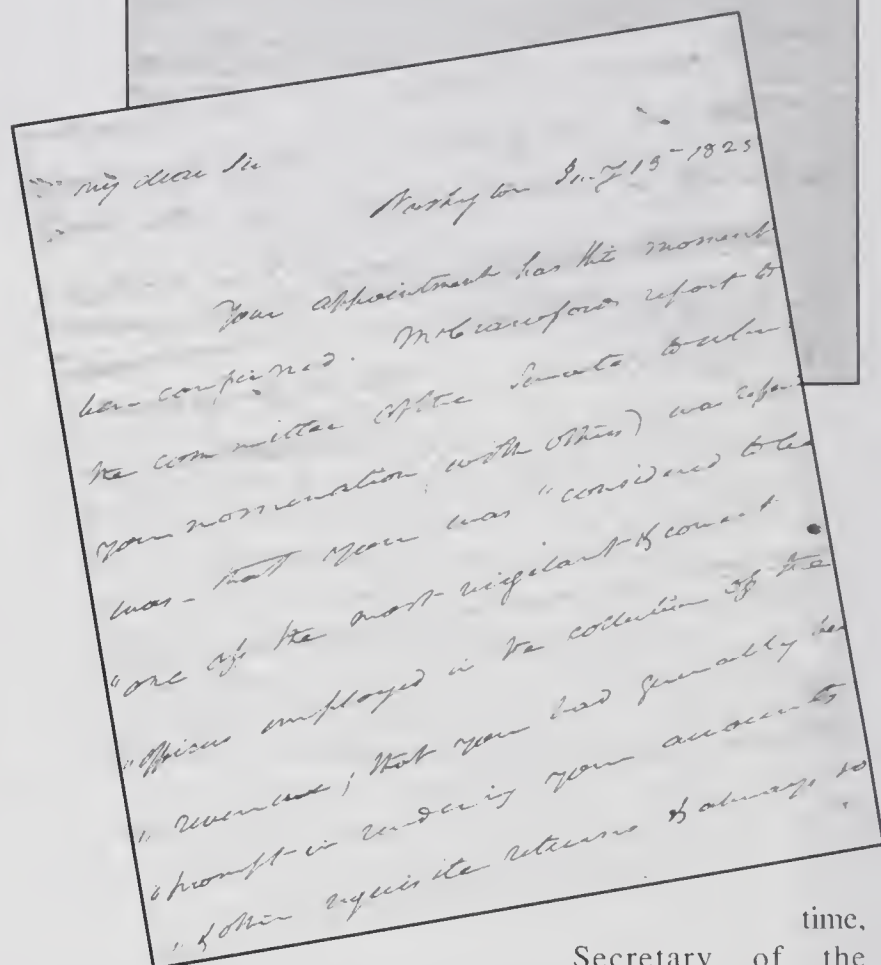 my dear Sir
Washington Jany 13 - 1823
Your appointment has this moment
been confirmed. Mr Crawfords report to
the committee of the Senate to whom
your nomination with others) was refer
was - that you was "considered to be
"one of the most vigilant & correct
"officers employed in the collection of the
"revenue; that you had generally been
"prompt in rendering your accounts
"& other requisite returns & always so
time,
Secretary of the